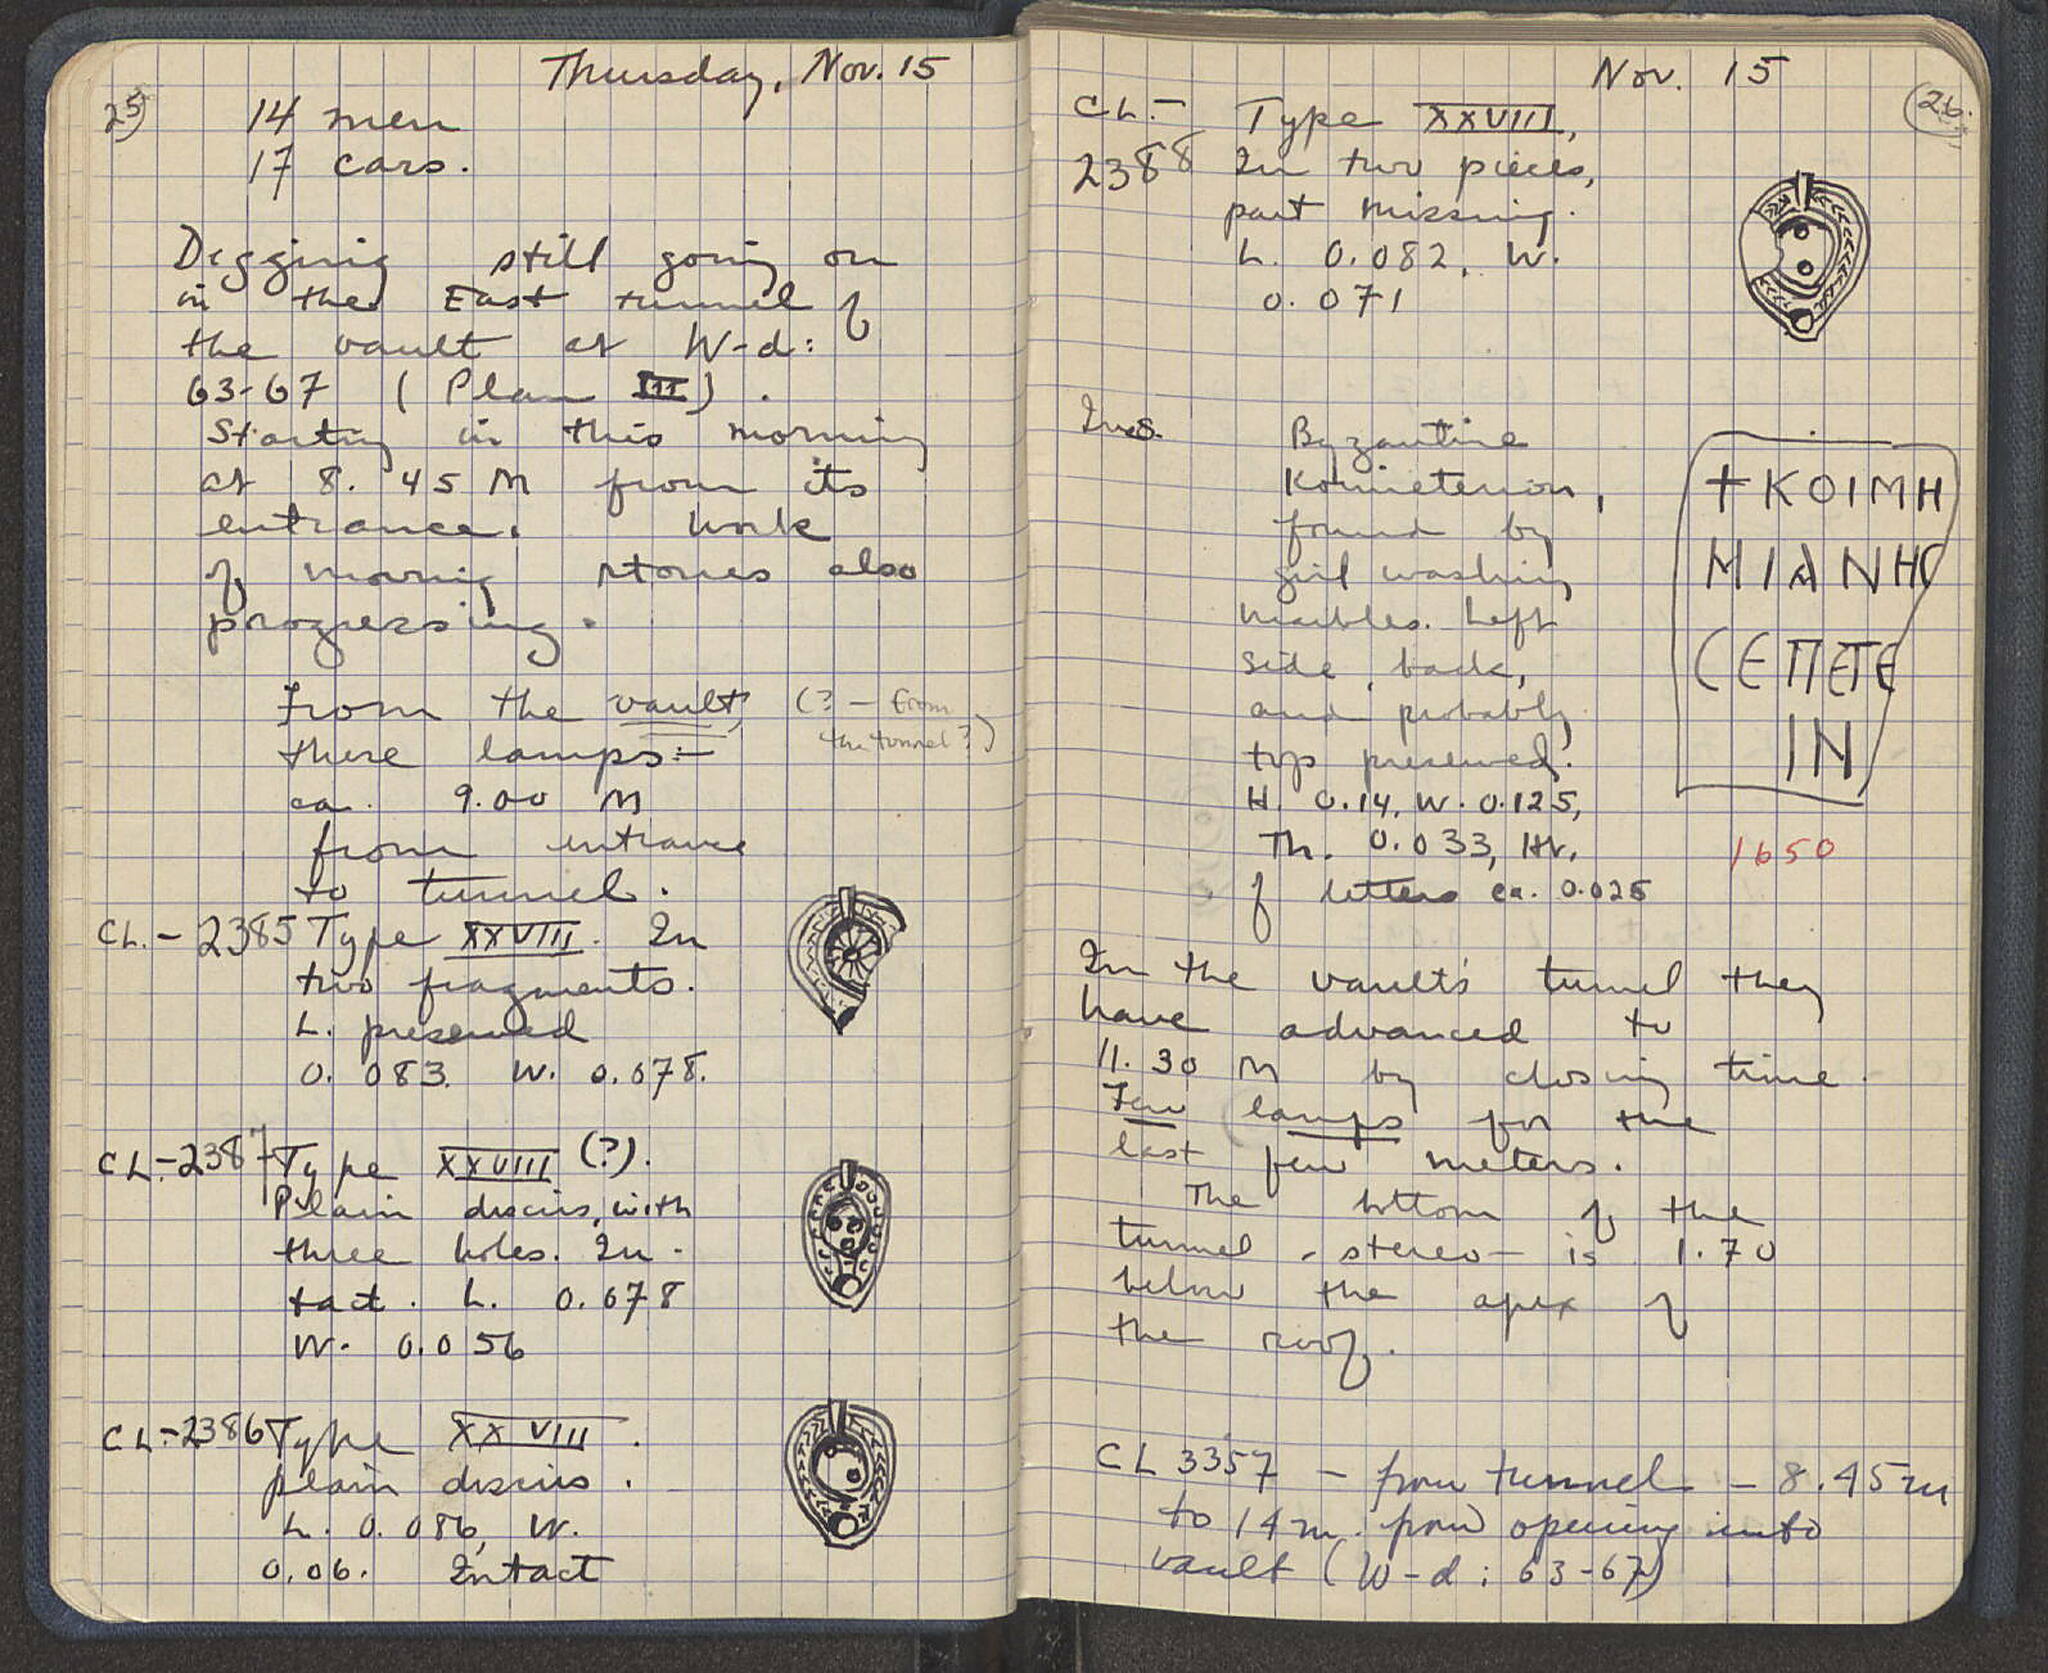 Thursday, Nov. 15
25
14 men
17 cars.
Digging still going on
in the East tunnel of
the vault at W-d:
63-67 (Plan III).
Starting in this morning
at 8.45 M from its
entrance. Work
of moving stones also
progressing.
From the vault, (? - from
the tunnel?)
these lamps:-
ca. 9.00 M
from entrance
to tunnel.
CL.- 2385 Type XXVIII. In
two fragments.
L. preserved
0.083. W. 0.078.
CL.- 2387 Type XXVIII (?).
Plain discus, with
three holes. In-
tact. L. 0.078
W. 0.056
CL.- 2386 Type XXVIII.
plain discus.
L. 0.086, W.
0.06. Intact
Nov. 15
26.
CL.- Type XXVIII,
2388 In two pieces,
part missing.
L. 0.082, W.
0.071
Ins. Byzantine
Koimeterion,
found by
girl washing
marbles. Left
side, back,
and probably
top preserved.
H. 0.14, W. 0.125,
Th. 0.033, Ht.
of letters ca. 0.025
+ΚΟΙΜΗ
ΜΙΑΝΗC
CΕΠΕΤΕ
ΙΝ
1650
In the vault's tunnel they
have advanced to
11.30 M by closing time.
Few lamps for the
last few meters.
The bottom of the
tunnel - stereo - is 1.70
below the apex of
the roof.
CL 3357 - from tunnel - 8.45m
to 14m. from opening into
vault (W-d: 63-67)